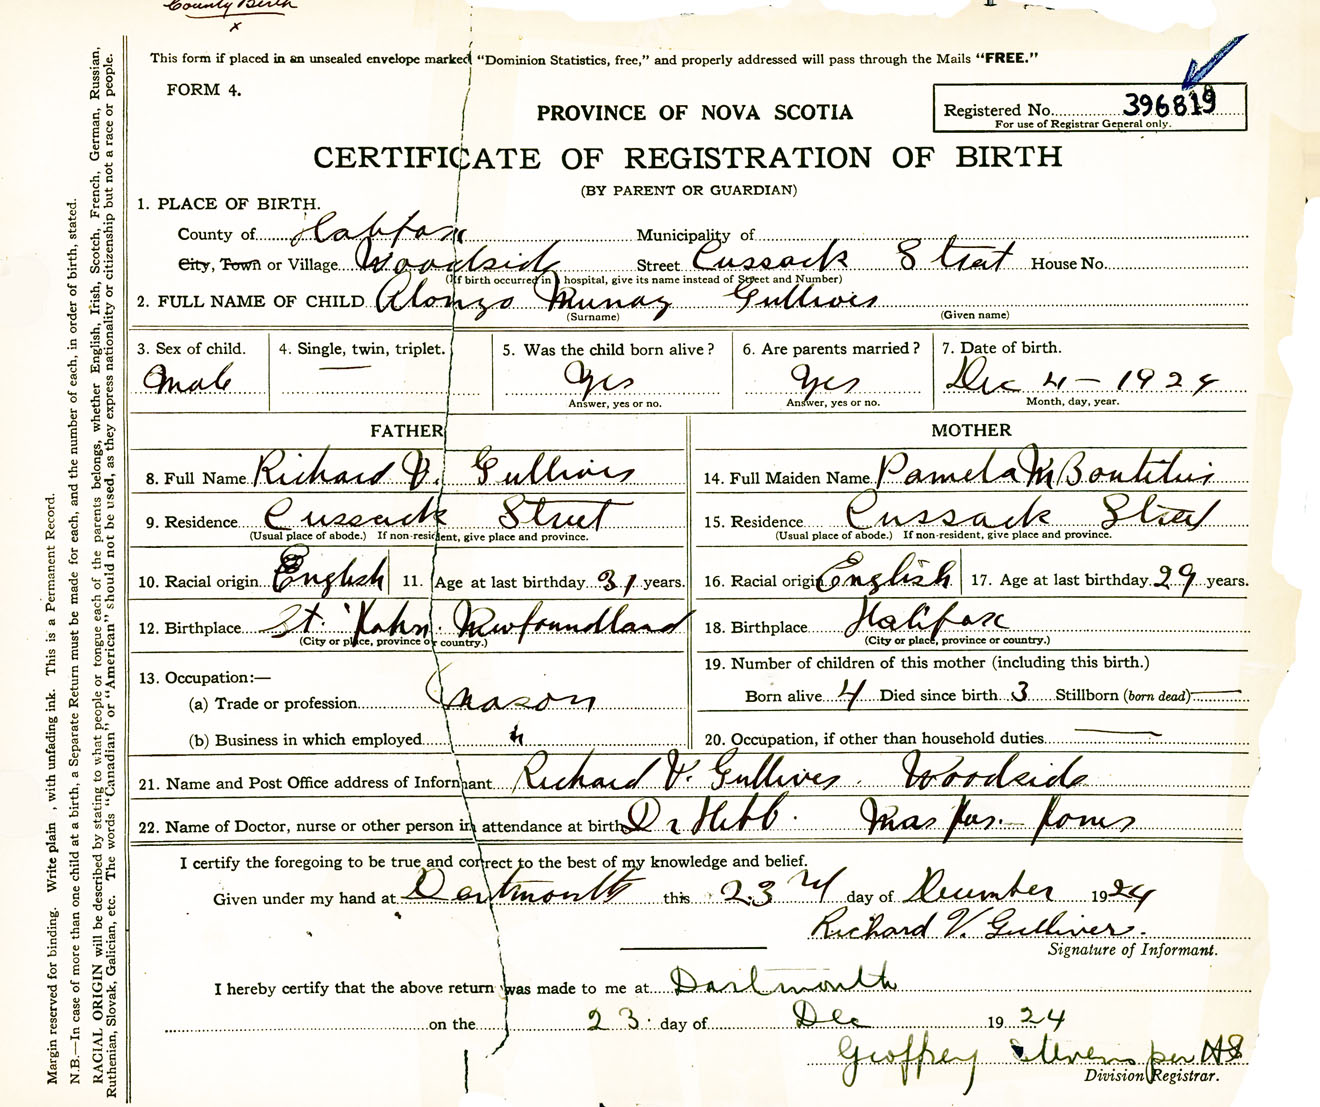 County Birth
x
This form if placed in an unsealed envelope marked "Dominion Statistics, free," and properly addressed will pass through the Mails "FREE."
FORM 4.
PROVINCE OF NOVA SCOTIA
Registered No. 396819
For use of Registrar General only.
CERTIFICATE OF REGISTRATION OF BIRTH
(BY PARENT OR GUARDIAN)
1. PLACE OF BIRTH.
County of Halifax Municipality of
City, Town or Village Woodside Street Cussack Street House No.
(If birth occurred in hospital, give its name instead of Street and Number)
2. FULL NAME OF CHILD Alonzo Murray Gullivers
(Surname) (Given name)
3. Sex of child. 4. Single, twin, triplet. 5. Was the child born alive? 6. Are parents married? 7. Date of birth.
Male — Yes Yes Dec 4 - 1924
Answer, yes or no. Answer, yes or no. Month, day, year.
FATHER MOTHER
8. Full Name Richard V. Gullivers 14. Full Maiden Name Pamela M Boutilier
9. Residence Cussack Street 15. Residence Cussack Street
(Usual place of abode.) If non-resident, give place and province. (Usual place of abode.) If non-resident, give place and province.
10. Racial origin English 11. Age at last birthday 31 years. 16. Racial origin English 17. Age at last birthday 29 years.
12. Birthplace St. John Newfoundland 18. Birthplace Halifax
(City or place, province or country.) (City or place, province or country.)
13. Occupation:— 19. Number of children of this mother (including this birth.)
(a) Trade or profession Mason Born alive 4 Died since birth 3 Stillborn (born dead) —
(b) Business in which employed 20. Occupation, if other than household duties —
21. Name and Post Office address of Informant Richard V. Gullivers. Woodside
22. Name of Doctor, nurse or other person in attendance at birth Dr Hebb.
I certify the foregoing to be true and correct to the best of my knowledge and belief.
Given under my hand at Dartmouth this 23rd day of December 1924
Richard V. Gullivers.
Signature of Informant.
I hereby certify that the above return was made to me at Dartmouth
on the 23. day of Dec 1924
Geoffrey Stevens per HS
Division Registrar.
Margin reserved for binding. Write plain , with unfading ink. This is a Permanent Record.
N.B.—In case of more than one child at a birth, a Separate Return must be made for each, and the number of each, in order of birth, stated.
RACIAL ORIGIN will be described by stating to what people or tongue each of the parents belongs, whether English, Irish, Scotch, French, German, Russian,
Ruthenian, Slovak, Galician, etc. The words "Canadian" or "American" should not be used, as they express nationality or citizenship but not a race or people.